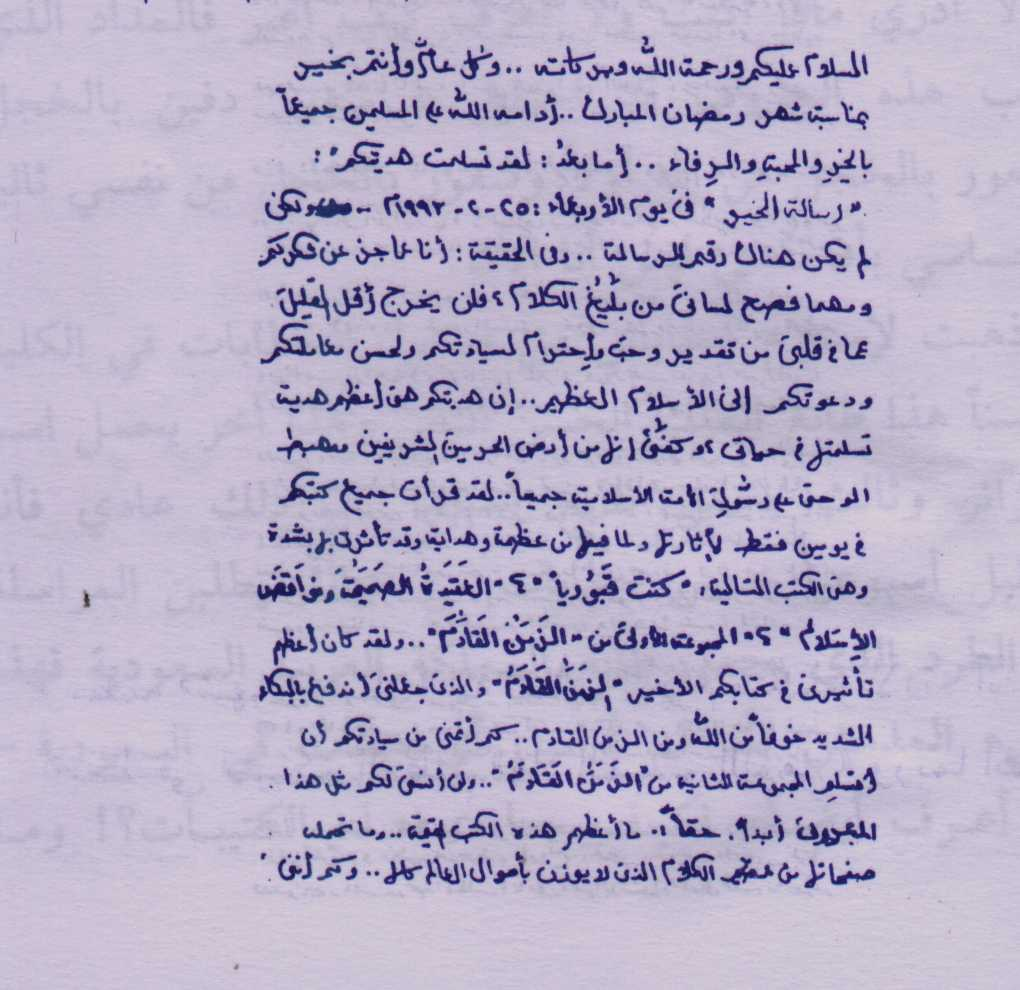 السلام عليكم ورحمة الله وبركاته .. وكل عام وأنتم بخير
بمناسبة شهر رمضان المبارك .. أدامه الله على المسلمين جميعاً
بالخير والمحبة والرفاء .. أما بعد : لقد تسلمت هديتكم :
"رسالة الخير" في يوم الأربعاء : ٢٥-٢-١٩٩٢م - ولكن
لم يكن هناك رقم للرسالة .. وفي الحقيقة : أنا عاجز عن شكركم
ومهما فصح لساني من بليغ الكلام ، فلن يخرج أقل القليل
عما في قلبي من تقدير وحب وإحترام لسيادتكم ولحسن معاملتكم
ودعوتكم إلى الأسلام العظيم .. إن هديتكم هي أعظم هدية
تسلمتها في حياتي ، وكفى إنها من أرض الحرمين الشريفين ومهبط
الوحي على رسول الأمة الأسلامية جميعاً .. لقد قرأت جميع كتبكم
في يومين فقط لإثارتها ولما فيها من عظمة وهداية وقد تأثرت بها بشدة
وهي الكتب التالية : "كنت قبورياً" "٤" العقيدة الصحيحة ونواقض
الإسلام "٢" المجموعة الأولى من "الزمن القادم" .. ولقد كان أعظم
تأثيري في كتابكم الأخير "الزمن القادم" والذي جعلني أندفع بالبكاء
الشديد خوفاً من الله ومن الزمن القادم .. كم أتمنى من سيادتكم أن
أستلم المجموعة الثانية من "الزمن القادم" .. ولن أنسى لكم مثل هذا
المعروف أبداً . حقاً .. ما أعظم هذه الكتب القيمة .. وما تحمله
صفحاتها من عظيم الكلام الذي لا يوزن بأموال العالم كلها .. وكم أتمنى